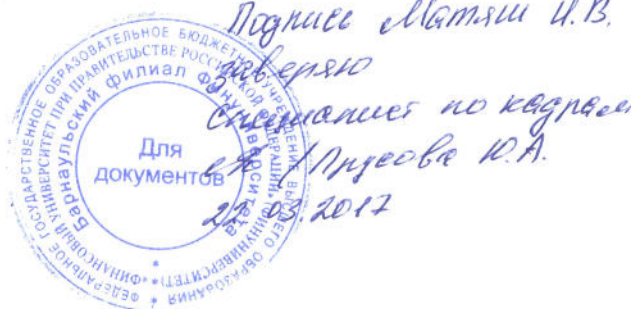 Подпись Матяш И.В.
заверяю
специалист по кадрам
/Прусова Ю.А.
22.03.2017
ФЕДЕРАЛЬНОЕ ГОСУДАРСТВЕННОЕ ОБРАЗОВАТЕЛЬНОЕ БЮДЖЕТНОЕ УЧРЕЖДЕНИЕ ВЫСШЕГО ОБРАЗОВАНИЯ
«ФИНАНСОВЫЙ УНИВЕРСИТЕТ ПРИ ПРАВИТЕЛЬСТВЕ РОССИЙСКОЙ ФЕДЕРАЦИИ» (ФИНУНИВЕРСИТЕТ)
Барнаульский филиал Финуниверситета
Для
документов